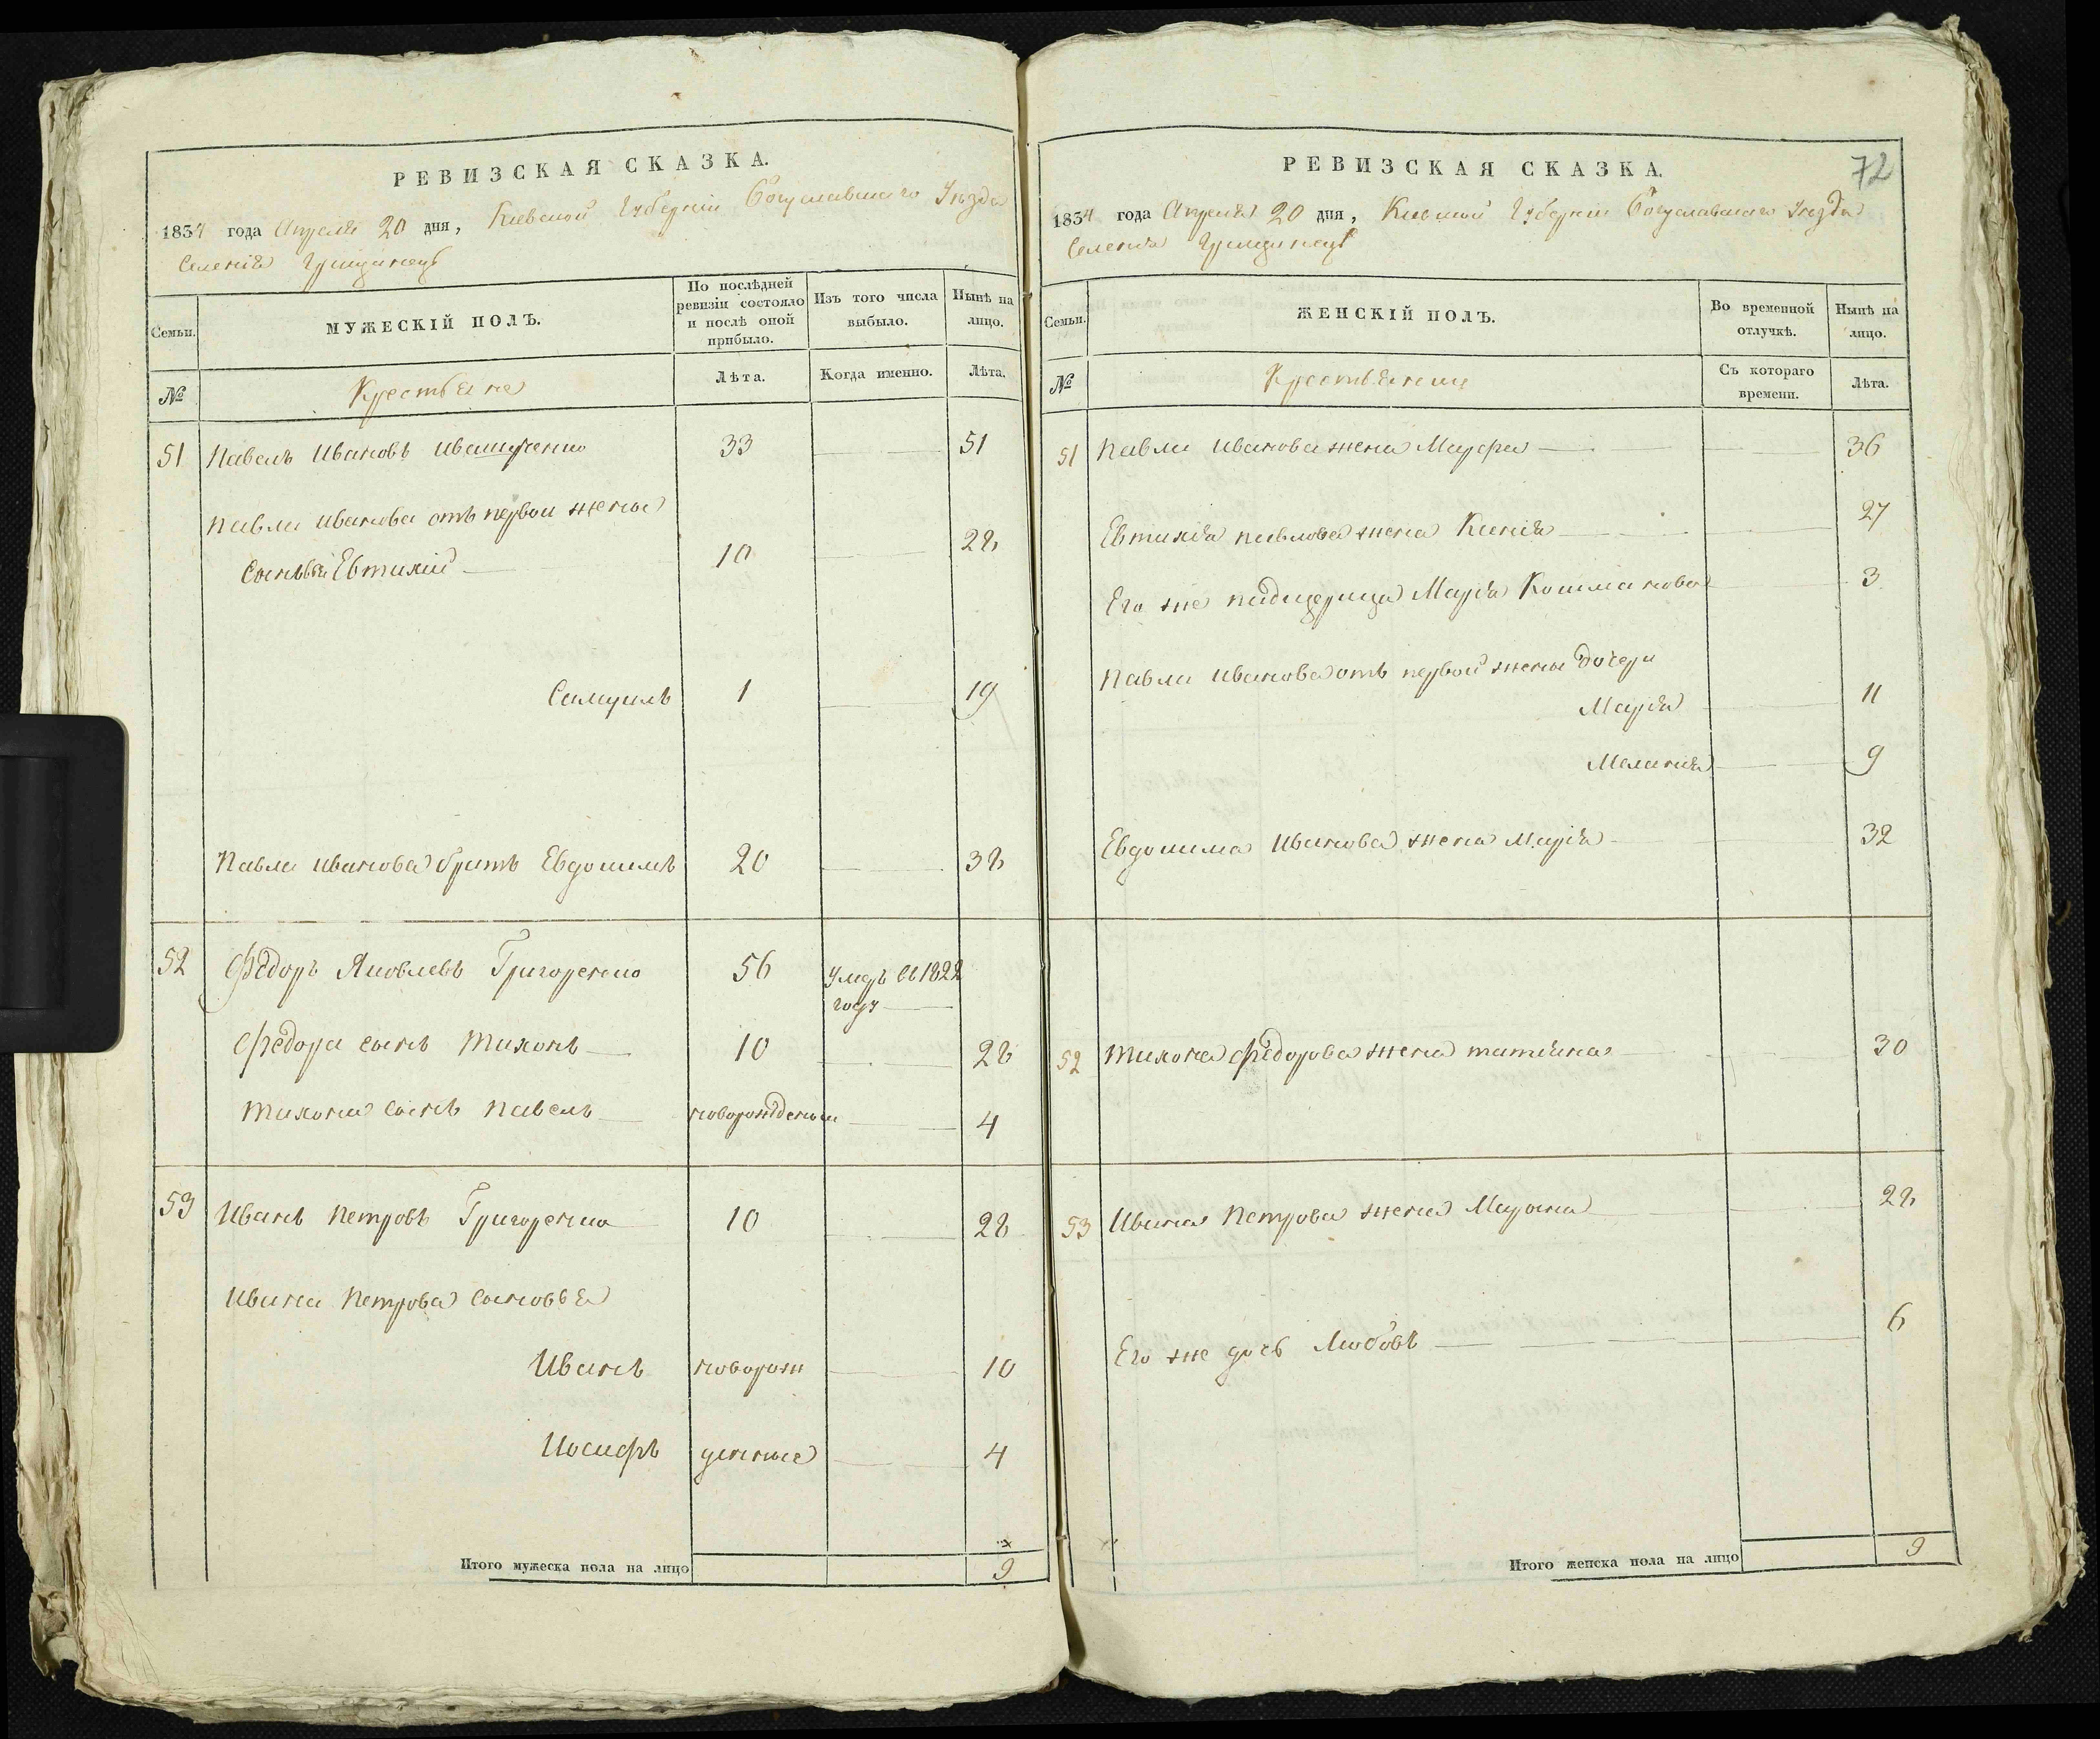 РЕВИЗСКАЯ СКАЗКА.
1834 года Апреля 20 дня, Киевской Губерніи Богуславскаго Уезда
Селенія Грищинецъ
Семьи.
МУЖЕСКІЙ ПОЛЪ.
По послѣдней ревизіи состояло и послѣ оной прибыло.
Изъ того числа выбыло.
Нынѣ на лицо.
№
Крестьяне
Лѣта.
Когда именно.
Лѣта.
51 Павелъ Ивановъ Иващенко 33 51
Павла Иванова отъ первои жены
Сыновья Евтихій 10 28
Самуилъ 1 19
Павла Иванова братъ Евдокимъ 20 38
52 Федоръ Яковлевъ Григоренко 56 Умеръ въ 1822
году
Федора сынъ Тихонъ 10 28
Тихона сынъ Павелъ новорожденыи 4
53 Иванъ Петровъ Григоренко 10 28
Ивана Петрова сыновья
Иванъ новорож 10
Иосифъ денные 4
Итого мужеска пола на лицо 9
РЕВИЗСКАЯ СКАЗКА.
72
1834 года Апреля 20 дня, Киевской Губерніи Богуславскаго Уезда
Селенія Грищинецъ
Семьи.
ЖЕНСКІЙ ПОЛЪ.
Во временной отлучкѣ.
Нынѣ на лицо.
№
Крестьянки
Съ котораго времени.
Лѣта.
51 Павла Иванова жена Марфа 36
Евтихія Павлова жена Ксенія 27
Его же падщерица Марія Кошманова 3
Павла Иванова отъ первой жены дочери
Марія 11
Меланія 9
Евдокима Иванова жена Марія 32
52 Тихона Федорова жена татіяна 30
53 Ивана Петрова жена Марина 28
Его же дочь Любовь 6
Итого женска пола на лицо 9